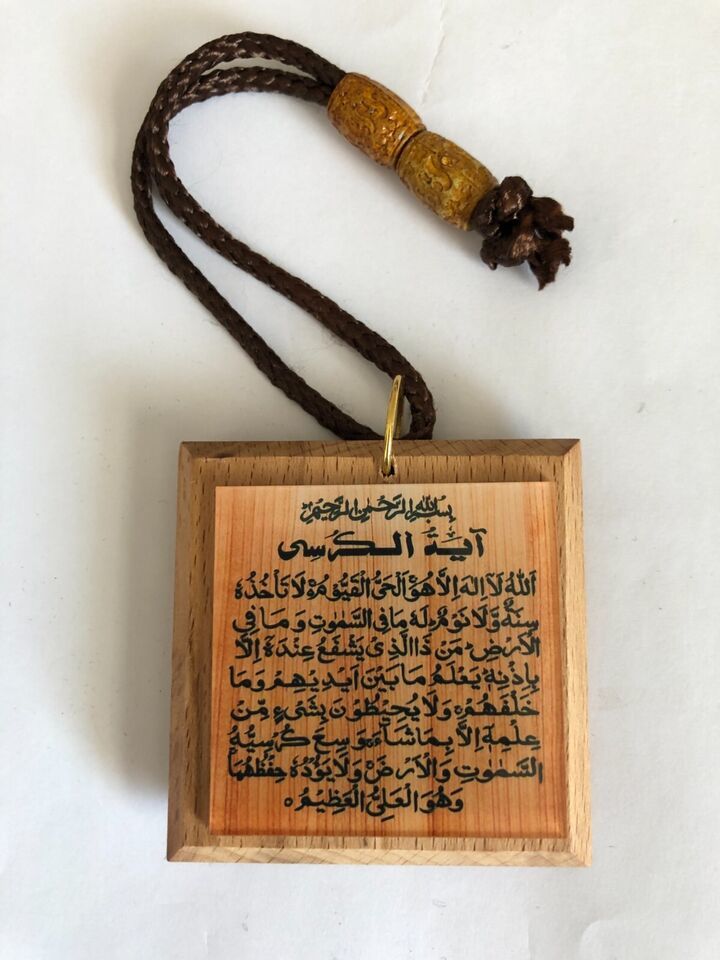 بِسْمِ اللهِ الرَّحْمٰنِ الرَّحِيْمِ
آية الكرسى
اَللهُ لَآ اِلٰهَ اِلَّا هُوَ اَلْحَىُّ الْقَيُّوْمُ ەۚ لَا تَأْخُذُهٗ
سِنَةٌ وَّلَا نَوْمٌ لَهٗ مَا فِى السَّمٰوٰتِ وَمَا فِى
الْاَرْضِ مَنْ ذَا الَّذِىْ يَشْفَعُ عِنْدَهٗٓ اِلَّا
بِاِذْنِهٖ يَعْلَمُ مَا بَيْنَ اَيْدِيْهِمْ وَمَا
خَلْفَهُمْ وَلَا يُحِيْطُوْنَ بِشَىْءٍ مِّنْ
عِلْمِهٖٓ اِلَّا بِمَا شَآءَ وَسِعَ كُرْسِيُّهُ
السَّمٰوٰتِ وَالْاَرْضَ وَلَا يَؤُدُهٗ حِفْظُهُمَا
وَهُوَ الْعَلِىُّ الْعَظِيْمُ ه